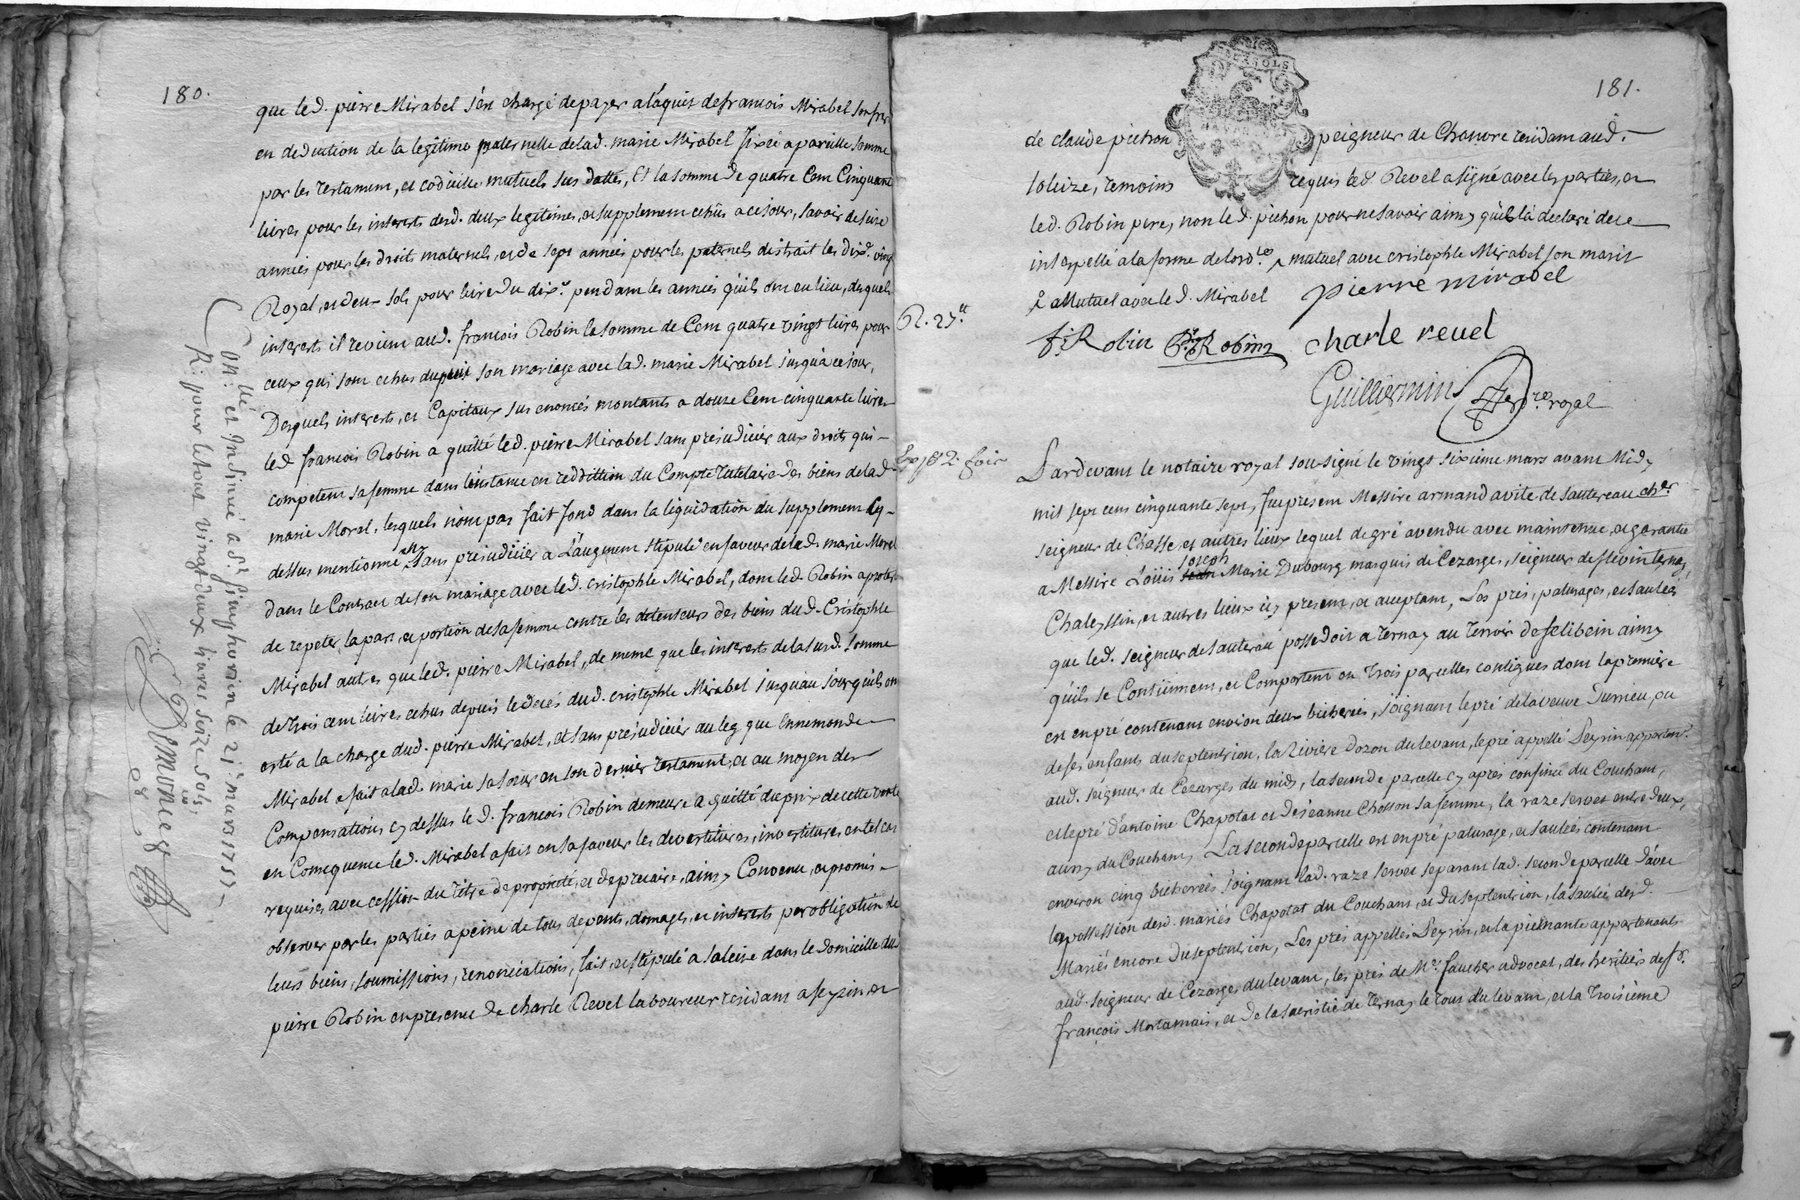 180.
que led. pierre Mirabel s'est chargé depayer a l'aquit defrancois Mirabel son frere
en deduction de la legitime paternelle delad. marie Mirabel fixée a pareille somme
par les testament, et codicille mutuels sus dattés, Et la somme de quatre Cent Cinquante
livres pour les interests desd. deux legitimes, et supplement echûs a ce jour, savoir de seize
années pour les droits maternels, et de sept années pour les paternels distrait les dixe. vingt
Royal, et deux sols pour livre du dixe. pendant les années quils ont eu lieu, desquels
interests il revient aud. francois Robin la somme de Cent quatre vingt livres pour
ceux qui sont echus depuis son mariage avec lad. marie Mirabel jusqu'a ce jour,
Desquels interests, et Capitaux sus enoncés montants a douze Cent cinquante livres
led. francois Robin a quitté led. pierre Mirabel sans prejudicier aux droits qui -
competent sa femme dans l'instance en reddition du Compte tutelaire des biens de lad.
marie Moral, lesquels n'ont pas fait fond dans la liquidation du supplement cy -
dessus mentionné sans prejudicier a L'augment stipulé en faveur de lad. marie Moral
dans le Contract de son mariage avec led. cristophle Mirabel, dont led. Robin a protesté
de repeter la part, et portion de sa femme contre les detenteurs des biens dud. Cristophle
Mirabel autres que led. pierre Mirabel, de meme que les interests de la susd. somme
de trois cent livres echus depuis le decés dud. cristophle Mirabel jusqu'au jour quils ont
esté a la charge dud. pierre Mirabel, et sans prejudicier au leg que Ennemonde
Mirabel a fait a lad. marie sa soeur en son dernier testament, et au moyen des
Compensations cy dessus le d. francois Robin demeure a quitté du prix de cette vente
en Consequence led. Mirabel a fait en sa faveur les devestitures, investitures en tel cas
requises avec cession du titre de proprieté, et de precaire, ainsy Convenu, et promis -
observer par les parties a peine de tous depents, domages, et interests par obligation de
leurs biens, soumissions, renonciations, fait, et stipulé a Soleize dans le domicille dud.
pierre Robin en presence de charle Revel laboureur residant a feyzin et
Onllé et Insinué a St. Simphorien le 21e mars 1757 -
R: pour le tout vingt deux livres seize sols
181.
de claude pichon peigneur de Chanvre residant aud. -
soleize, temoins requis led. Revel a signé avec les parties, et
led. Robin pere, non led. pichon pour ne savoir ainsy quil l'a declaré de ce
interpellé a la forme de lord.ce mutuel avec cristophle Mirabel son marit
a Mutuel avec le d. Mirabel
pierre mirabel
f. Robin Robin charle revel
Guillermin
ro. royal
R. 27tt
Ex. 182: fois
Pardevant le notaire royal sousigné le vingt sixieme mars avant Midy
mil sept cens cinquante sept, fut present Messire armand avite de sautereau cher
seigneur de Chasse, et autres lieux lequel de gré a vendu avec maintenue, et garantie
a Messire Loüis joseph Marie Dubourg marquis de Cezarges, seigneur de flevin ternay,
Chaleyssin, et autres lieux icy present, et aceptant, Les prés, paturages, et saulées
que led. seigneur de sautereau possedoit a ternay au terroir de felibein ainsy
quils se Contiennent, et Comportent en trois parcelles contigues dont la premiere
est en pré contenant environ deux bicherées, joignant le pré de la veuve Durrieu, ou
de ses enfants du septentrion, la riviere d'ozon du levant, le pré appellé Leyrin appartent.
aud. seigneur de Cezarges du midy, la seconde parcelle cy aprés confinée du Couchant,
et le pré d'antoine Chapotat et de jeanne Chosson sa femme, la raze servet entre deux,
aussy du Couchant, La seconde parcelle est en pré paturage, et saulées contenant
environ cinq bicherées joignant lad. raze servet separant lad. seconde parcelle d'avec
la possession desd. mariés Chapotat du Couchant, et du septentrion, la saulée desd.
Mariés encore du septentrion, Les prés appellés Leyrin, et la pietnante appartenants
aud. seigneur de Cezarges du levant, les prés de Mr. faucher advocat, des heritiers de fr.
françois Mortamais, et de la sacristie de ternay le tout du levant, et la troisieme